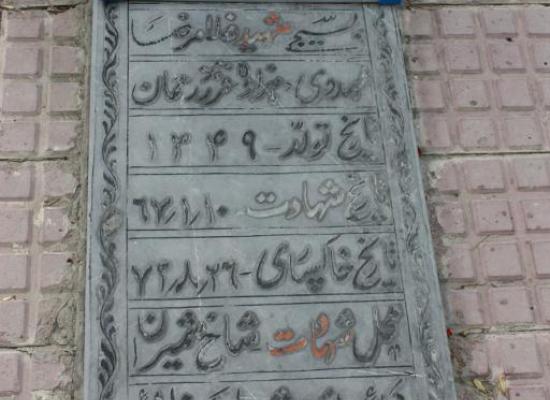 بسیجی شهید غلامرضا
مهدوی فرزند
تاریخ تولد - ۱۳۴۹
تاریخ شهادت - ۶۷٫۱٫۱۰
تاریخ خاکسپاری - ۷۲٫۸٫۲۶
محل شهادت شاخ شمیران